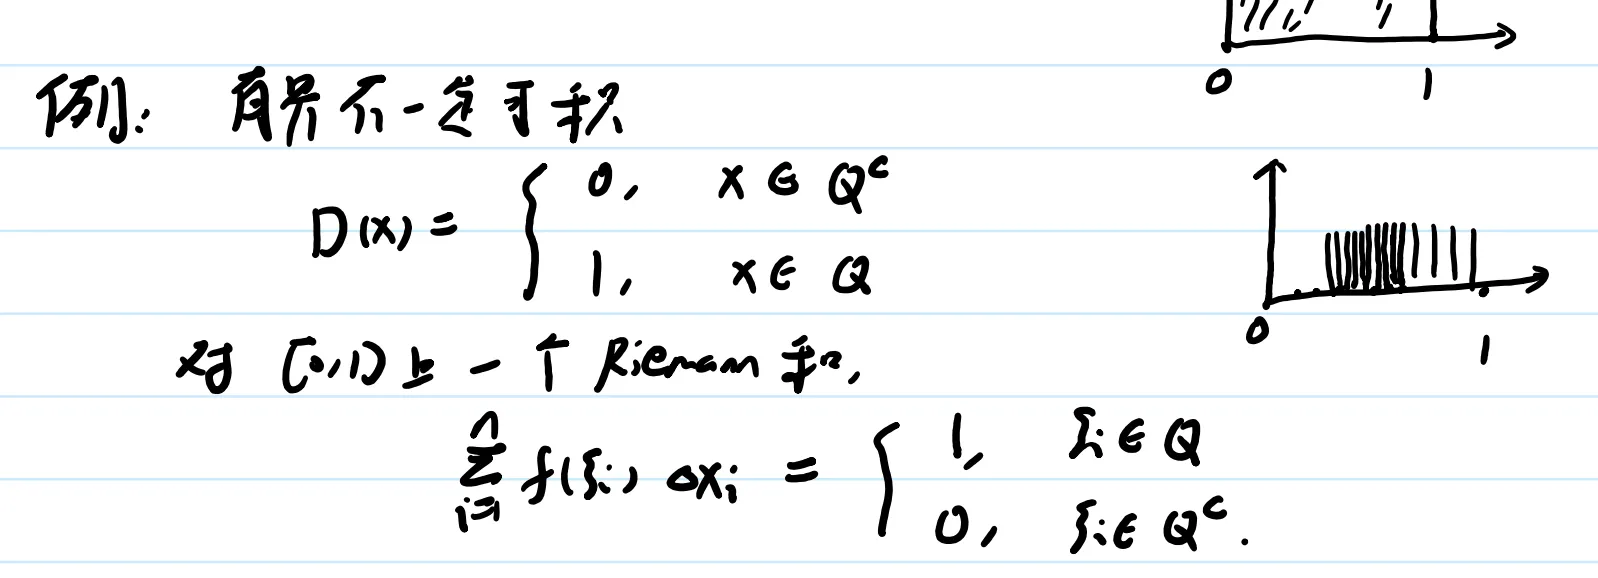 0 1
例: 有界不一定可积
D(x) = { 0, x ∈ Q^c
1, x ∈ Q
0 1
对 [0,1] 上一个 Riemann 和,
\sum_{i=1}^{n} f(ξ_i) Δx_i = { 1, ξ_i ∈ Q
0, ξ_i ∈ Q^c.